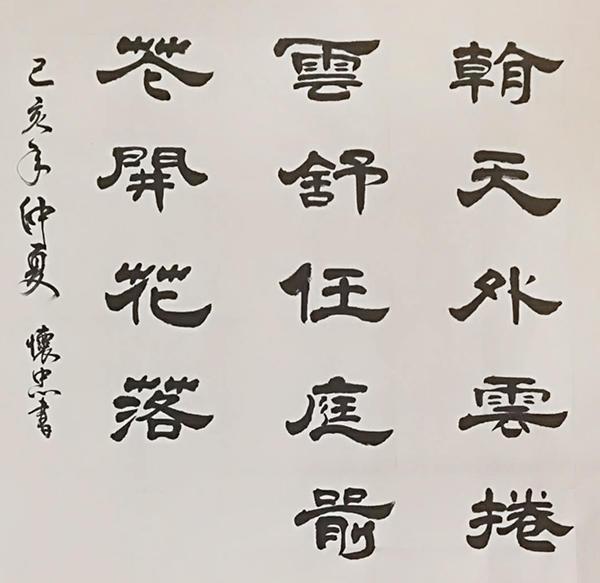 朝天外雲捲
雲舒任庭前
花開花落
己亥年仲夏 懷忠書